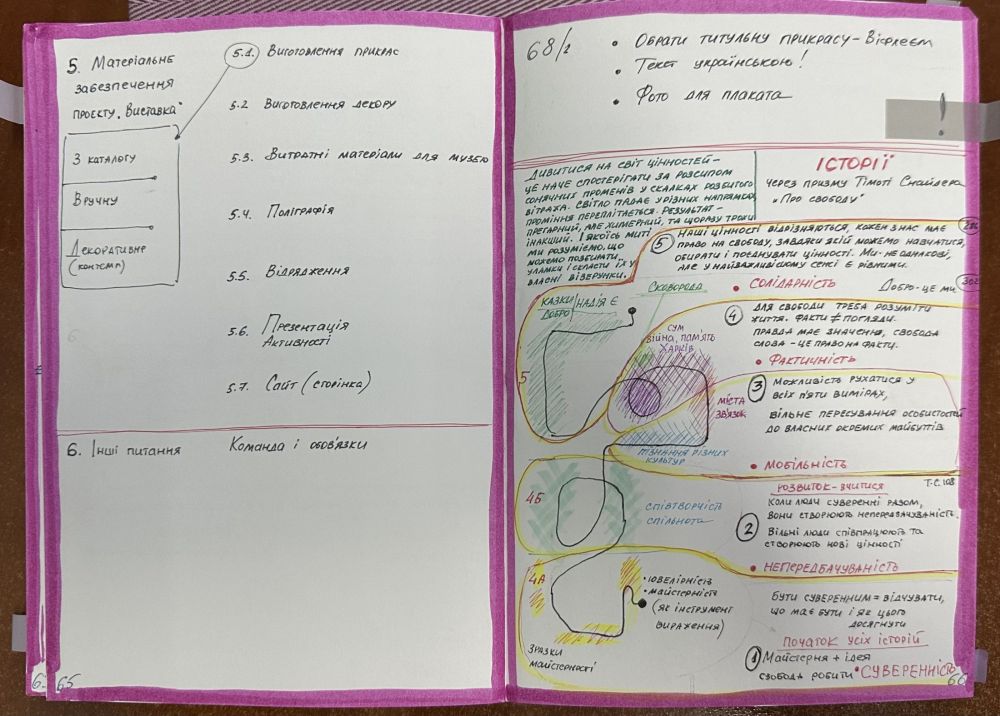 5. Матеріальне
забезпечення
проєкту „Виставка"
З каталогу
Вручну
Декоративне
(контемп)
5.1. Виготовлення прикрас
5.2 Виготовлення декору
5.3. Витратні матеріали для музею
5.4. Поліграфія
5.5. Відрядження
5.6. Презентація
Активності
5.7. Сайт (сторінка)
6. Інші питання
Команда і обов'язки
65
68/2
• Обрати титульну прикрасу – Віфлеєм
• Текст українською!
• Фото для плаката
!
Дивитися на світ цінностей –
це наче спостерігати за розсипом
сонячних променів у скалках розбитого
вітража. Світло падає у різних напрямках,
проміння переплітається. Результат –
прегарний, але химерний, та щоразу трохи
інакший. І якоїсь миті
ми розуміємо, що
можемо позбирати
уламки і скласти їх у
власні візерунки.
ІСТОРІЇ
через призму Тімоті Снайдера
„Про свободу"
5 Наші цінності відрізняються, кожен з нас має
право на свободу, завдяки якій можемо навчатися,
обирати і поєднувати цінності. Ми неоднакові,
але у найважливішому сенсі є рівними.
• СОЛІДАРНІСТЬ
Добро – це ми
302
4 Для свободи треба розуміти
життя. Факти ≠ погляди.
Правда має значення, свобода
слова – це право на факти.
• ФАКТИЧНІСТЬ
3 Можливість рухатися у
всіх п'яти вимірах,
вільне пересування особистостей
до власних окремих майбуттів
• МОБІЛЬНІСТЬ
РОЗВИТОК – ВЧИТИСЯ
Т.С. 108
Коли люди суверенні разом,
вони створюють непередбачуваність.
2 Вільні люди співпрацюють та
створюють нові цінності
• НЕПЕРЕДБАЧУВАНІСТЬ
Бути суверенним = відчувати,
що має бути і як цього
досягнути
ПОЧАТОК УСІХ ІСТОРІЙ
1 Майстерня + ідея
свобода робити • СУВЕРЕННІСТЬ
66
Сковорода
казки
добро
надія є
сум
війна, пам'ять
Харків
5
міста
зв'язок
пізнання різних
культур
4Б
співтворчість
спільнота
4А
• ювелірність
• майстерність
(як інструмент
вираження)
Зразки
майстерності